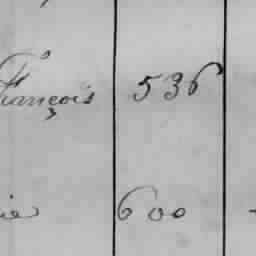 François 536
ie 600